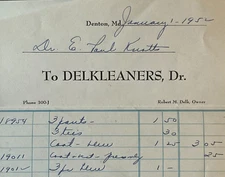 Denton, Md. January 1 - 1952
Dr E Paul Knotts
To DELKLEANERS, Dr.
Phone 300-J Robert M. Delk, Owner
18954 3 pants - 1 50
3 ties 30
Coat - 1 25 3 05
19011 Coat 25
1901 1 -